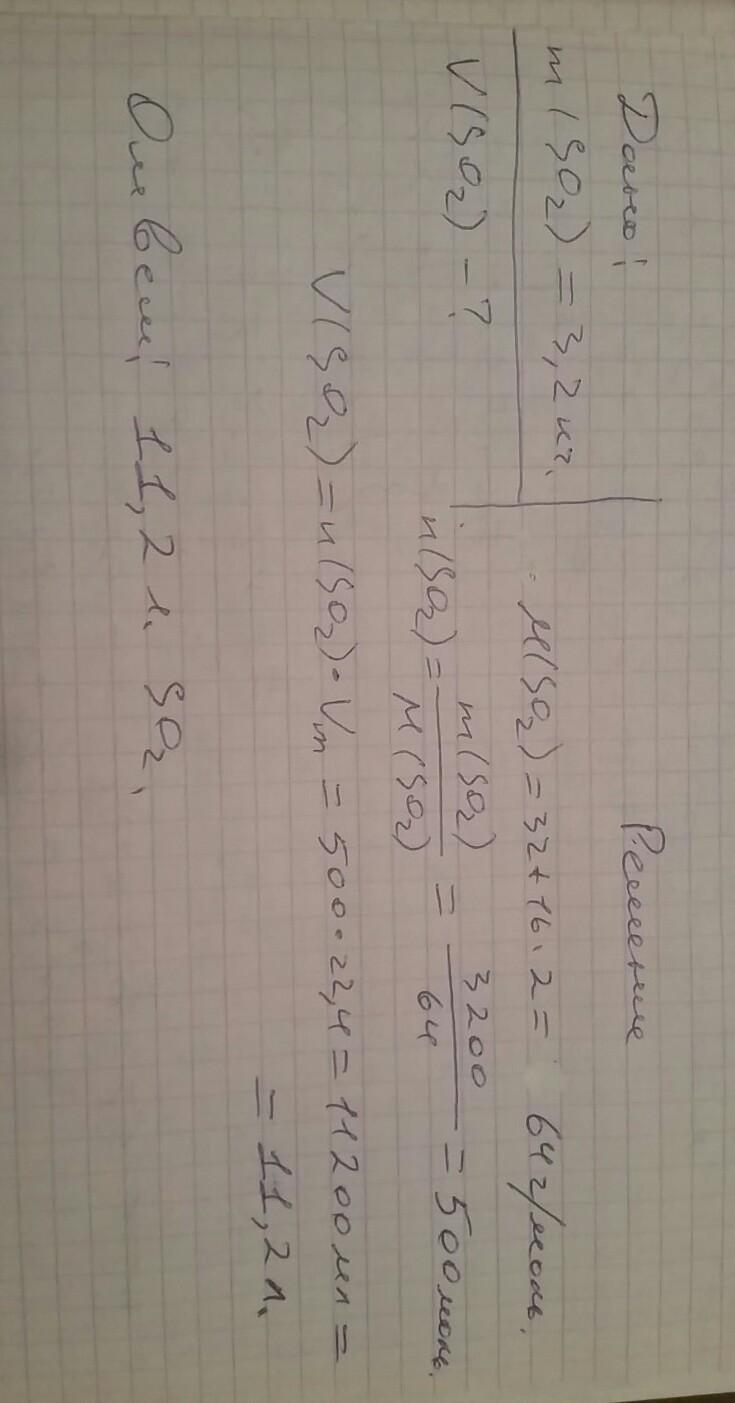 Дано: Решение
m(SO2) = 3,2 кг. M(SO2) = 32+16·2 = 64 г/моль.
V(SO2) - ? n(SO2) = m(SO2) / M(SO2) = 3200 / 64 = 500 моль.
V(SO2) = n(SO2)·Vm = 500·22,4 = 11200 мл =
= 11,2 л.
Ответ: 11,2 л. SO2.